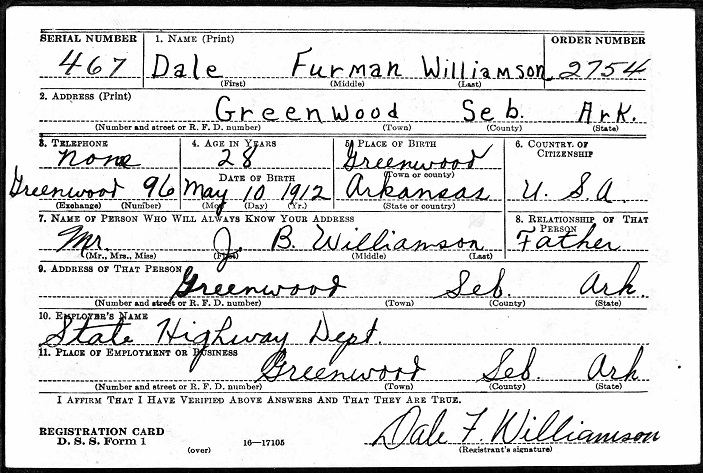 SERIAL NUMBER 1. NAME (Print) ORDER NUMBER
467 Dale Furman Williamson 2754
(First) (Middle) (Last)
2. ADDRESS (Print)
Greenwood Seb. Ark.
(Number and street or R. F. D. number) (Town) (County) (State)
3. TELEPHONE 4. AGE IN YEARS 5. PLACE OF BIRTH 6. COUNTRY OF
none 28 Greenwood CITIZENSHIP
DATE OF BIRTH (Town or county)
Greenwood 96 May 10 1912 Arkansas U. S. A.
(Exchange) (Number) (Mo.) (Day) (Yr.) (State or country)
7. NAME OF PERSON WHO WILL ALWAYS KNOW YOUR ADDRESS 8. RELATIONSHIP OF THAT
PERSON
Mr. J. B. Williamson Father
(Mr., Mrs., Miss) (First) (Middle) (Last)
9. ADDRESS OF THAT PERSON
Greenwood Seb. Ark.
(Number and street or R. F. D. number) (Town) (County) (State)
10. EMPLOYER'S NAME
State Highway Dept.
11. PLACE OF EMPLOYMENT OR BUSINESS
Greenwood Seb. Ark
(Number and street or R. F. D. number) (Town) (County) (State)
I AFFIRM THAT I HAVE VERIFIED ABOVE ANSWERS AND THAT THEY ARE TRUE.
REGISTRATION CARD Dale F. Williamson
D. S. S. Form 1 (over) 16—17105 (Registrant's signature)